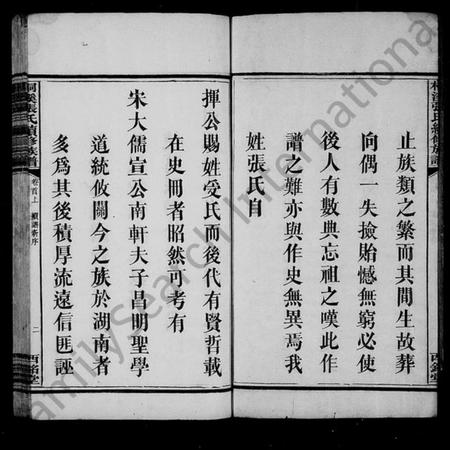 止族類之繁而其間生故葬
向偶一失撿貽憾無窮必使
後人有數典忘祖之嘆此作
譜之難亦與作史無異焉我
姓張氏自
揮公賜姓受氏而後代有賢哲載
在史冊者昭然可考有
宋大儒宣公南軒夫子昌明聖學
道統攸關今之族於湖南者
多爲其後積厚流遠信匪誣
桐溪張氏續修族譜
卷首上
序
二
西銘堂
FamilySearch International